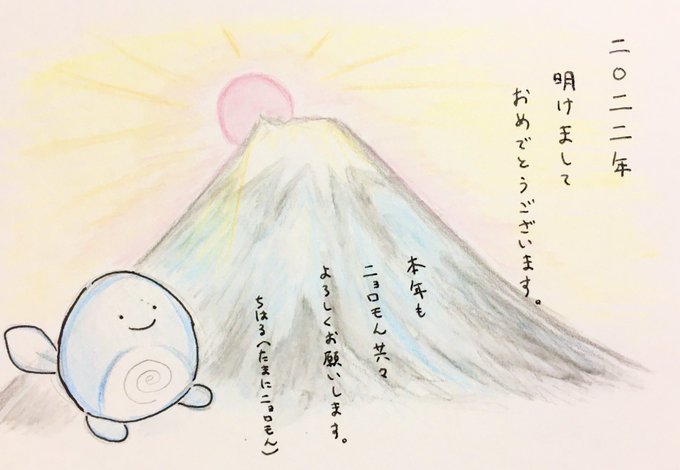 二〇二二年
明けまして
おめでとうございます。
本年も
ニョロモん共々
よろしくお願いします。
ちはる(たまにニョロモん)